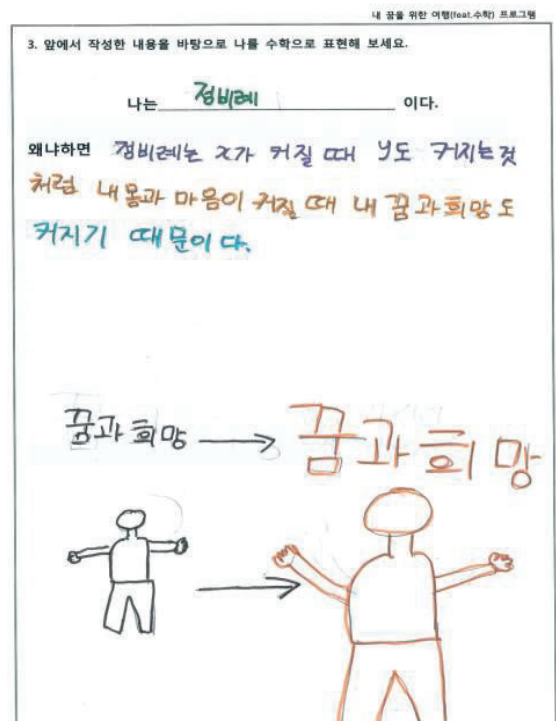 내 꿈을 위한 여행(feat.수학) 프로그램
3. 앞에서 작성한 내용을 바탕으로 나를 수학으로 표현해 보세요.
나는 정비례 이다.
왜냐하면 정비례는 x가 커질 때 y도 커지는것
처럼 내몸과 마음이 커질 때 내 꿈과희망도
커지기 때문이다.
꿈과 희망 → 꿈과 희망